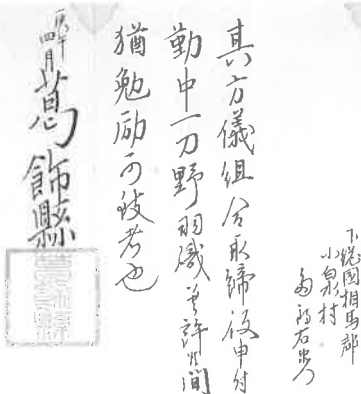 下總國相馬郡
小泉村
右衛門
其方儀組合取締役申付
勤中一刀野羽織差許候間
猶勉励可致者也
庚午
四月
葛飾縣